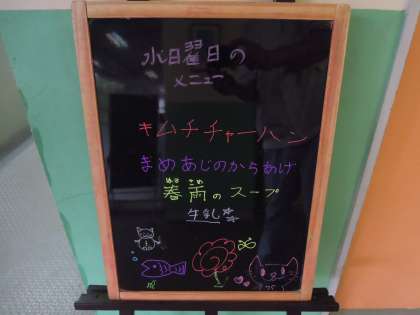 水曜日の
メニュー
キムチチャーハン
まめあじのからあげ
はるさめ
春雨のスープ
牛乳